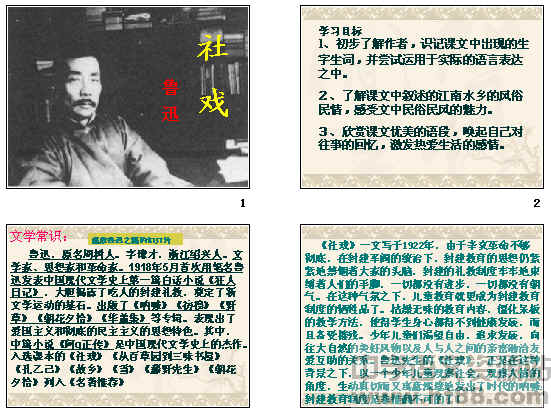 社
戏
鲁
迅
1
学习目标
1、初步了解作者，识记课文中出现的生
字生词，并尝试运用于实际的语言表达
之中。
2、了解课文中叙述的江南水乡的风俗
民情，感受文中民俗民风的魅力。
3、欣赏课文优美的语段，唤起自己对
往事的回忆，激发热爱生活的感情。
2
文学常识：
鲁迅，原名周树人，字豫才，浙江绍兴人。文
学家、思想家和革命家。1918年5月首次用笔名鲁
迅发表中国现代文学史上第一篇白话小说《狂人
日记》，大胆揭露了吃人的封建礼教，奠定了新
文学运动的基石。出版了《呐喊》《彷徨》《野
草》《朝花夕拾》《华盖集》等专集。表现出了
爱国主义和彻底的民主主义的思想特色。其中，
中篇小说《阿Q正传》是中国现代文学史上的杰作。
入选课本的《社戏》《从百草园到三味书屋》
《孔乙己》《故乡》《雪》《藤野先生》《朝花
夕拾》列入《名著推荐》
《社戏》一文写于1922年，由于辛亥革命不够
彻底，在封建军阀的统治下，封建教育的思想仍紧
紧地禁锢着大家的头脑，封建的礼教制度牢牢地束
缚着人们的手脚，一切都没有进步，一切都没有朝
气。在这种气氛之下，儿童教育就更成为封建教育
制度的牺牲品了。枯燥无味的教育内容，僵化呆板
的教学方法，使得学生身心都得不到健康发展，而
且备受摧残。少年儿童们渴望自由，追求发展，向
往大自然的美好风物以及人与人之间的亲密吻洽友
爱互助的关系。鲁迅先生的《社戏》，正是在这种
背景之下，以一个少年儿童观察社会、观察人情的
角度，生动真切而又寓意深邃地发出了时代的呐喊